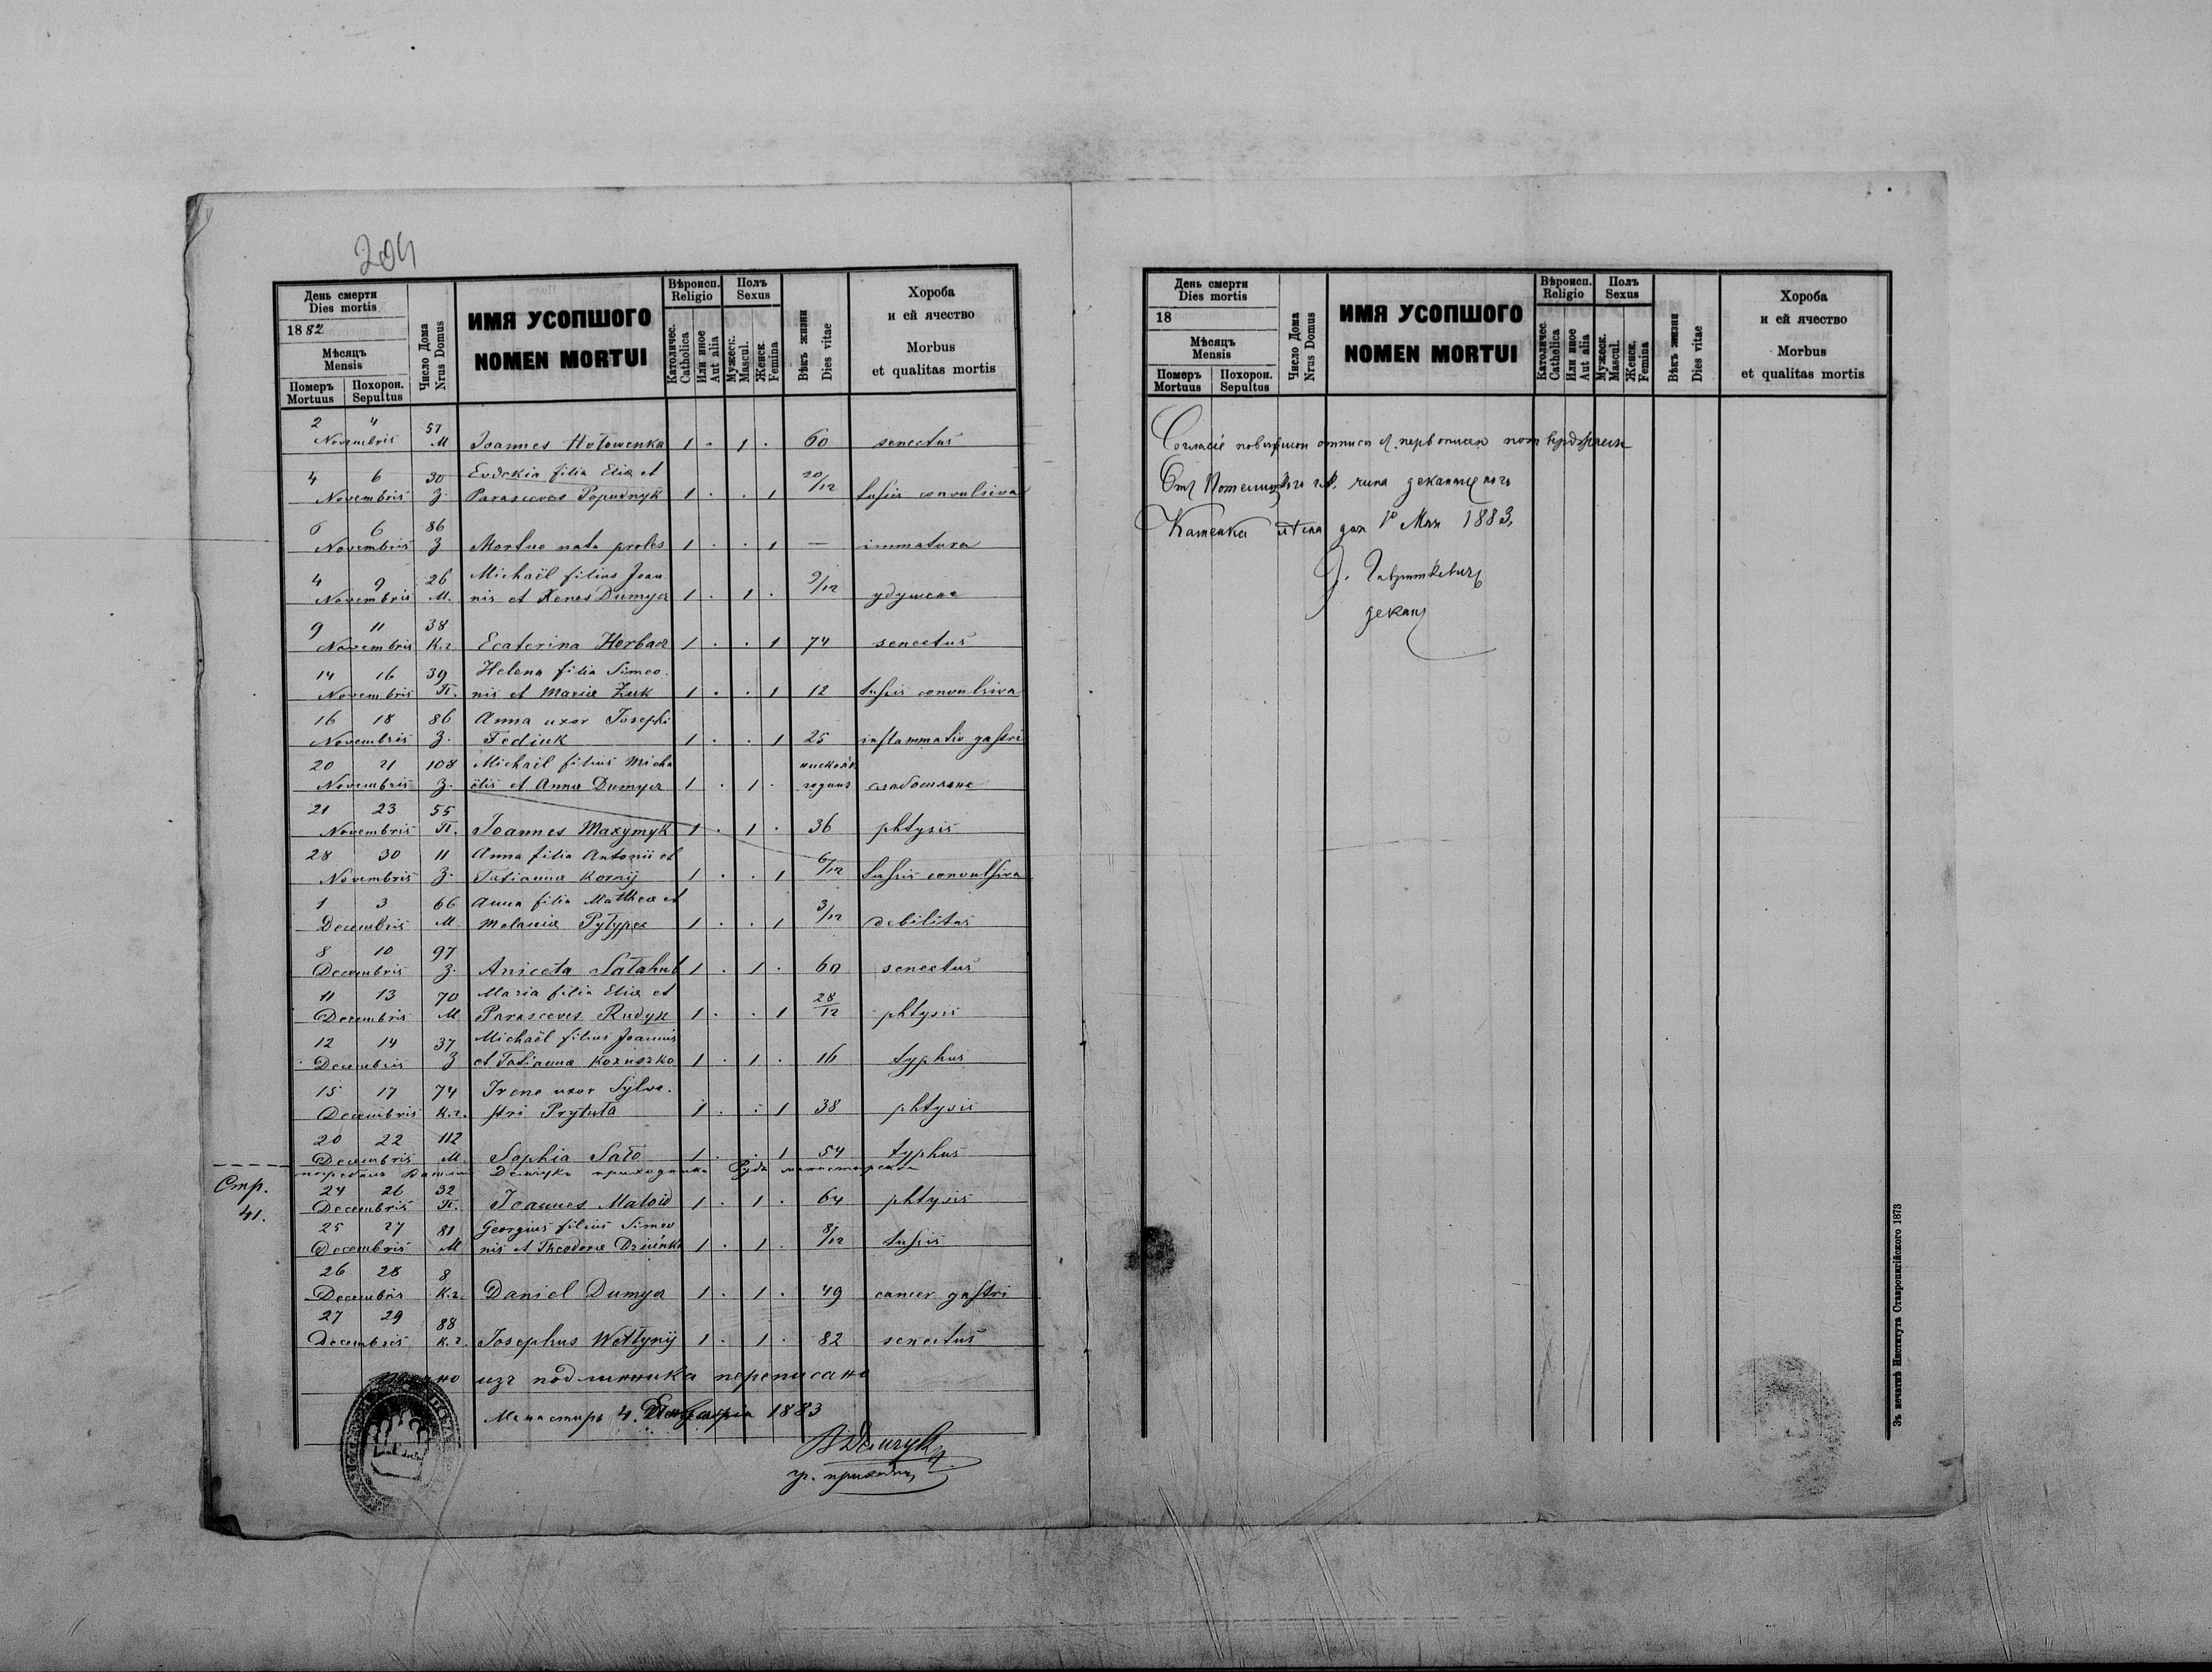 204
День смерти
Dies mortis
1882
Мѣсяцъ
Mensis
Померъ Mortuus
Похорон. Sepultus
Число Дома
Nrus Domus
ИМЯ УСОПШОГО
NOMEN MORTUI
Вѣроисп.
Religio
Католичес.
Catholica
Или иное
Aut alia
Полъ
Sexus
Мужеск.
Mascul.
Женск.
Femina
Вѣкъ жизни
Dies vitae
Хороба
и ей ячество
Morbus
et qualitas mortis
2 4 57
Novembris М Joannes Hołowenka 1 . 1 . 60 senectus
4 6 30 Evdokia filia Eliæ et 20/12
Novembris З. Parasceves Popudnyk 1 . . 1 tussis convulsiva
6 6 86
Novembris З Mortuo nata proles 1 . . 1 — immatura
4 9 26 Michaël filius Joan- 9/12
Novembris М. nis et Xenes Dumycz 1 . 1 .
9 11 38
Novembris К.г. Ecaterina Horbacz 1 . . 1 74 senectus
14 16 39 Helena filia Simeo-
Novembris П. nis et Mariæ Zuk 1 . . 1 12 tussis convulsiva
16 18 86 Anna uxor Josephi
Novembris З. Fediuk 1 . . 1 25 inflammatio gastri
20 21 108 Michaël filius Micha
Novembris З. ëlis et Annæ Dumycz 1 . 1 . годинъ
21 23 55
Novembris П. Joannes Maxymyk 1 . 1 . 36 phtysis
28 30 11 Anna filia Antonii et 6/12
Novembris З. Tatiannæ Kornij 1 . . 1 tussis convulsiva
1 3 66 Anna filia Matthæi et 3/12
Decembris М. Melaniæ 1 . . 1 debilitas
8 10 97
Decembris З. Aniceta Sałahub 1 . 1 . 60 senectus
11 13 70 Maria filia Eliæ et 28/12
Decembris М Parasceves Rudyk 1 . . 1 phtysis
12 14 37 Michaël filius Joannis
Decembris З et Tatiannæ Kożuszko 1 . 1 . 16 typhus
15 17 74 Irene uxor Sylve-
Decembris К.г. stri Prytuła 1 . . 1 38 phtysis
20 22 112
Decembris М. Sophia Sało 1 . . 1 54 typhus
Демчукъ приходникъ Руда
Стр.
41.
24 26 32
Decembris П. Joannes 1 . 1 . 64 phtysis
25 27 81 Georgius filius Simeo 8/12
Decembris М nis et Theodoræ 1 . 1 . tussis
26 28 8
Decembris К.г. Daniel Dumycz 1 . 1 . 49 cancer gastri
27 29 88
Decembris К.г. Josephus 1 . 1 . 82 senectus
изъ подлинника переписано
Монастиръ 4. 1883
В Демчукъ
гр. приходн.
День смерти
Dies mortis
18
Мѣсяцъ
Mensis
Померъ Mortuus
Похорон. Sepultus
Число Дома
Nrus Domus
ИМЯ УСОПШОГО
NOMEN MORTUI
Вѣроисп.
Religio
Католичес.
Catholica
Или иное
Aut alia
Полъ
Sexus
Мужеск.
Mascul.
Женск.
Femina
Вѣкъ жизни
Dies vitae
Хороба
и ей ячество
Morbus
et qualitas mortis
Согласіе отписи
Отъ
Каменка дня 1883.
деканъ
Зъ печатнѣ Института Ставропигійского 1873